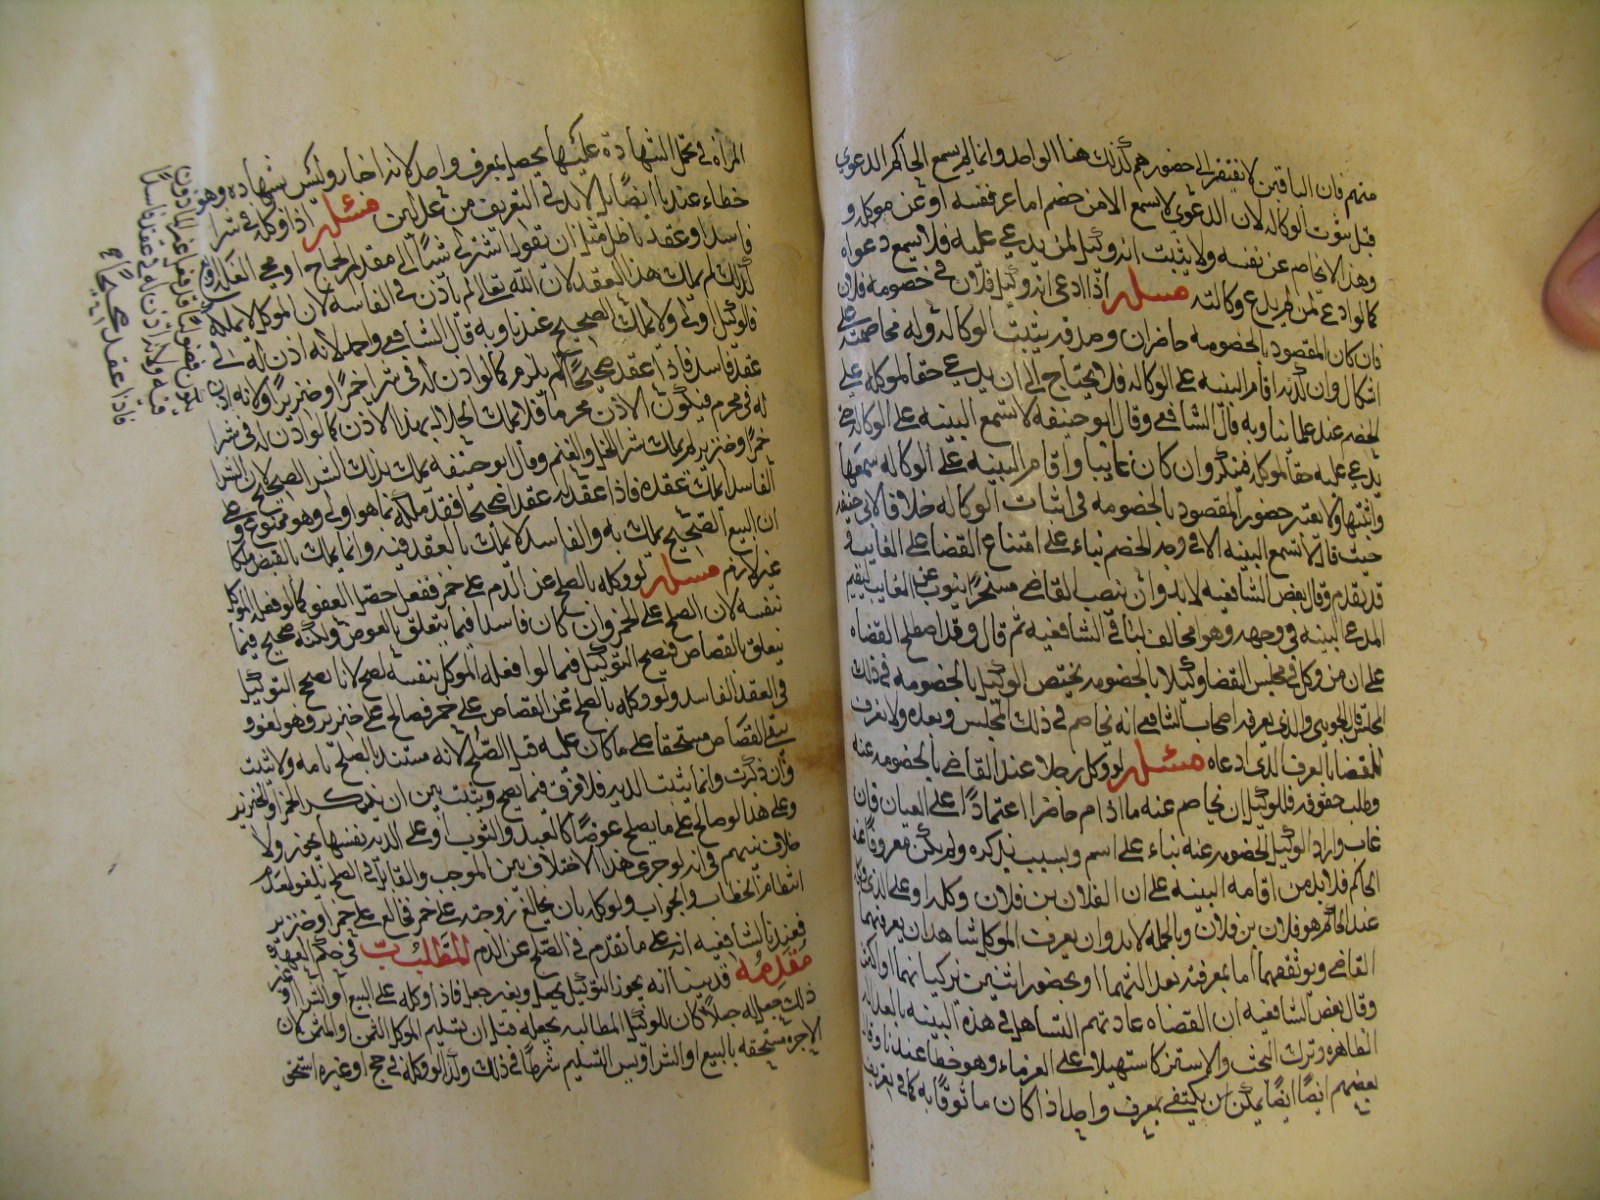 منهم فان الباقين لا يفتقر الى حضورهم كذلك هنا الواحد وانما لم يسمع الحاكم الدعوى
قبل ثبوت الوكالة لان الدعوى لا تسمع الا من خصم اما عن نفسه او عن موكله و
وهذا لا يخاصم عن نفسه ولا يثبت انه وكيل لمن يدعي عليه فلا يسمع دعواه
كما لو ادعى لمن لم يدع وكالته مسئلة اذا ادعى انه وكيل فلان في خصومة فلان
فان كان المقصود بالخصومة حاضرا وصدقه ثبتت الوكالة وله مخاصمته على
اشكال وان كذبه اقام البينة على الوكالة فلا يحتاج الى ان يدعي حقا لموكله على
الخصم عند علمائنا وبه قال الشافعي وقال ابو حنيفة لا تسمع البينة على الوكالة حتى
يدعي عليه حقا لموكله فينكر وان كان غايبا واقام البينة على الوكالة سمعها
واثبتها ولا يعتبر حضور المقصود بالخصومة في اثبات الوكالة خلافا لابي حنيفة
حيث قال لا تسمع البينة الا في وجه الخصم بناء على امتناع القضا على الغايب و
قد تقدم وقال بعض الشافعية لابد وان ينصب القاضي مسخرا ينوب عن الغايب ليقيم
المدعي البينة في وجهه وهو مخالف لباقي الشافعية ثم قال وقد اصطلح القضاة
على ان من وكل في مجلس القضا وكيلا بالخصومة يختص الوكيل بالخصومة في ذلك
المجلس قال الجويني والذي يعرفه اصحاب الشافعي انه يخاصم في ذلك المجلس وبعده ولا نعرف
للقضاة العرف الذي ادعاه مسئلة لو وكل رجلا عند القاضي بالخصومة عنه
وطلب حقوقه فللوكيل ان يخاصم عنه ما دام حاضرا اعتمادا على العيان فان
غاب واراد الوكيل الخصومة عنه بناء على اسم ونسب يذكره ولم يكن معروفا عند
الحاكم فلابد من اقامة البينة على ان الفلان بن فلان وكله او على الذي وكله
عند الحاكم هو فلان بن فلان وبالجملة لابد وان يعرف الموكل شاهدان يعرفهما
القاضي ويوثقهما اما بمعرفته بعدالتهما او بحضور اثنين تزكيانهما او اكثر
وقال بعض الشافعية ان القضاة عادتهم التساهل في هذه البينة بالعدالة
الظاهرة وترك البحث والاستزكاء تسهيلا على الغرماء وهو خطا عندنا وقال
بعضهم ايضا ايضا يمكن ان يكتفى بمعرف واحد اذا كان موثوقا به كما في تعريف
المراة في تحمل الشهادة عليها يحصل بمعرف واحد لانه اخبار وليس شهادة وهو
خطاء عندنا ايضا بل لابد في التعريف من عدلين مسئلة اذا وكله في شرا
فاسد او عقد باطل مثل ان يقول اشتر لي شيئا الى مقدم الحاج او مجئ الغلة وقع
كذلك لم يملك هذا العقد لان الله تعالى لم ياذن في الفاسد لان الموكل لا يملكه
فالوكيل اولى ولا يملك الصحيح عندنا وبه قال الشافعي واحمد لانه اذن له في
عقد فاسد فاذا عقد صحيحا لم يلزم كما لو اذن له في شرا خمر او خنزير ولانه اذن
له في محرم فيكون الاذن محرما فلا يملك الحلال بهذا الاذن كما لو اذن له في شرا
خمر او خنزير لم يملك شرا الخل والغنم وقال ابو حنيفة يملك بذلك الشرا الصحيح لان الشرا
الفاسد يملك عقده فاذا عقد له عقدا صحيحا فقد ملكه بما هو اولى وهو ممنوع و على
ان البيع الصحيح يملك به والفاسد لا يملك بالعقد فيه وانما يملك بالقبض ملكا
غير لازم مسئلة لو وكله بالصلح عن الدم على خمر ففعل حصل العفو كما لو فعله الموكل
بنفسه لان الصلح على الخمر وان كان فاسدا فيما يتعلق بالعوض ولكنه صحيح فيما
يتعلق بالقصاص فيصح التوكيل فيما لو فعله الموكل بنفسه لصح لا انا نصحح التوكيل
في العقد الفاسد ولو وكله بالصلح عن القصاص على خمر فصالح على خنزير وهو لغو و
يبقى القصاص مستحقا على ما كان عليه قبل الصلح لانه مستبد بالصلح تامه ولا تثبت
وان ذكرت وانما يثبت الدية فلا فرق فيما يصح ويثبت بين ان يذكر الخمر والخنزير
وعلى هذا لو صالح على ما يصلح عوضا كالعبد والثوب او على الدية نفسها يجوز ولا
خلاف بينهم في انه لو جرى هذا الاختلاف بين الموجب والقابل في الصلح يلغو لعدم
انتظام الخطاب والجواب ولو وكله بان يخالع زوجته على خمر فخالع على خمر او خنزير
فعندنا الشافعية انه على ما تقدم في الصلح عن الدم المطلب في حكم العهدة
مقدمة قد بينا انه يجوز التوكيل بجعل وبغير جعل فاذا وكله على البيع او الشرا او غير
ذلك وجعل له جعلا كان للوكيل المطالبة بجعله قبل ان يتسلم الموكل الثمن او المثمن لان
الاجرة مستحقة بالبيع او الشرا وليس التسليم شرطا في ذلك وكذا لو وكله في حج او غيره استحق
يكون فضوليا
فيه ولانه اذن له في عقد فاسد
فاذا عقد صحيحا